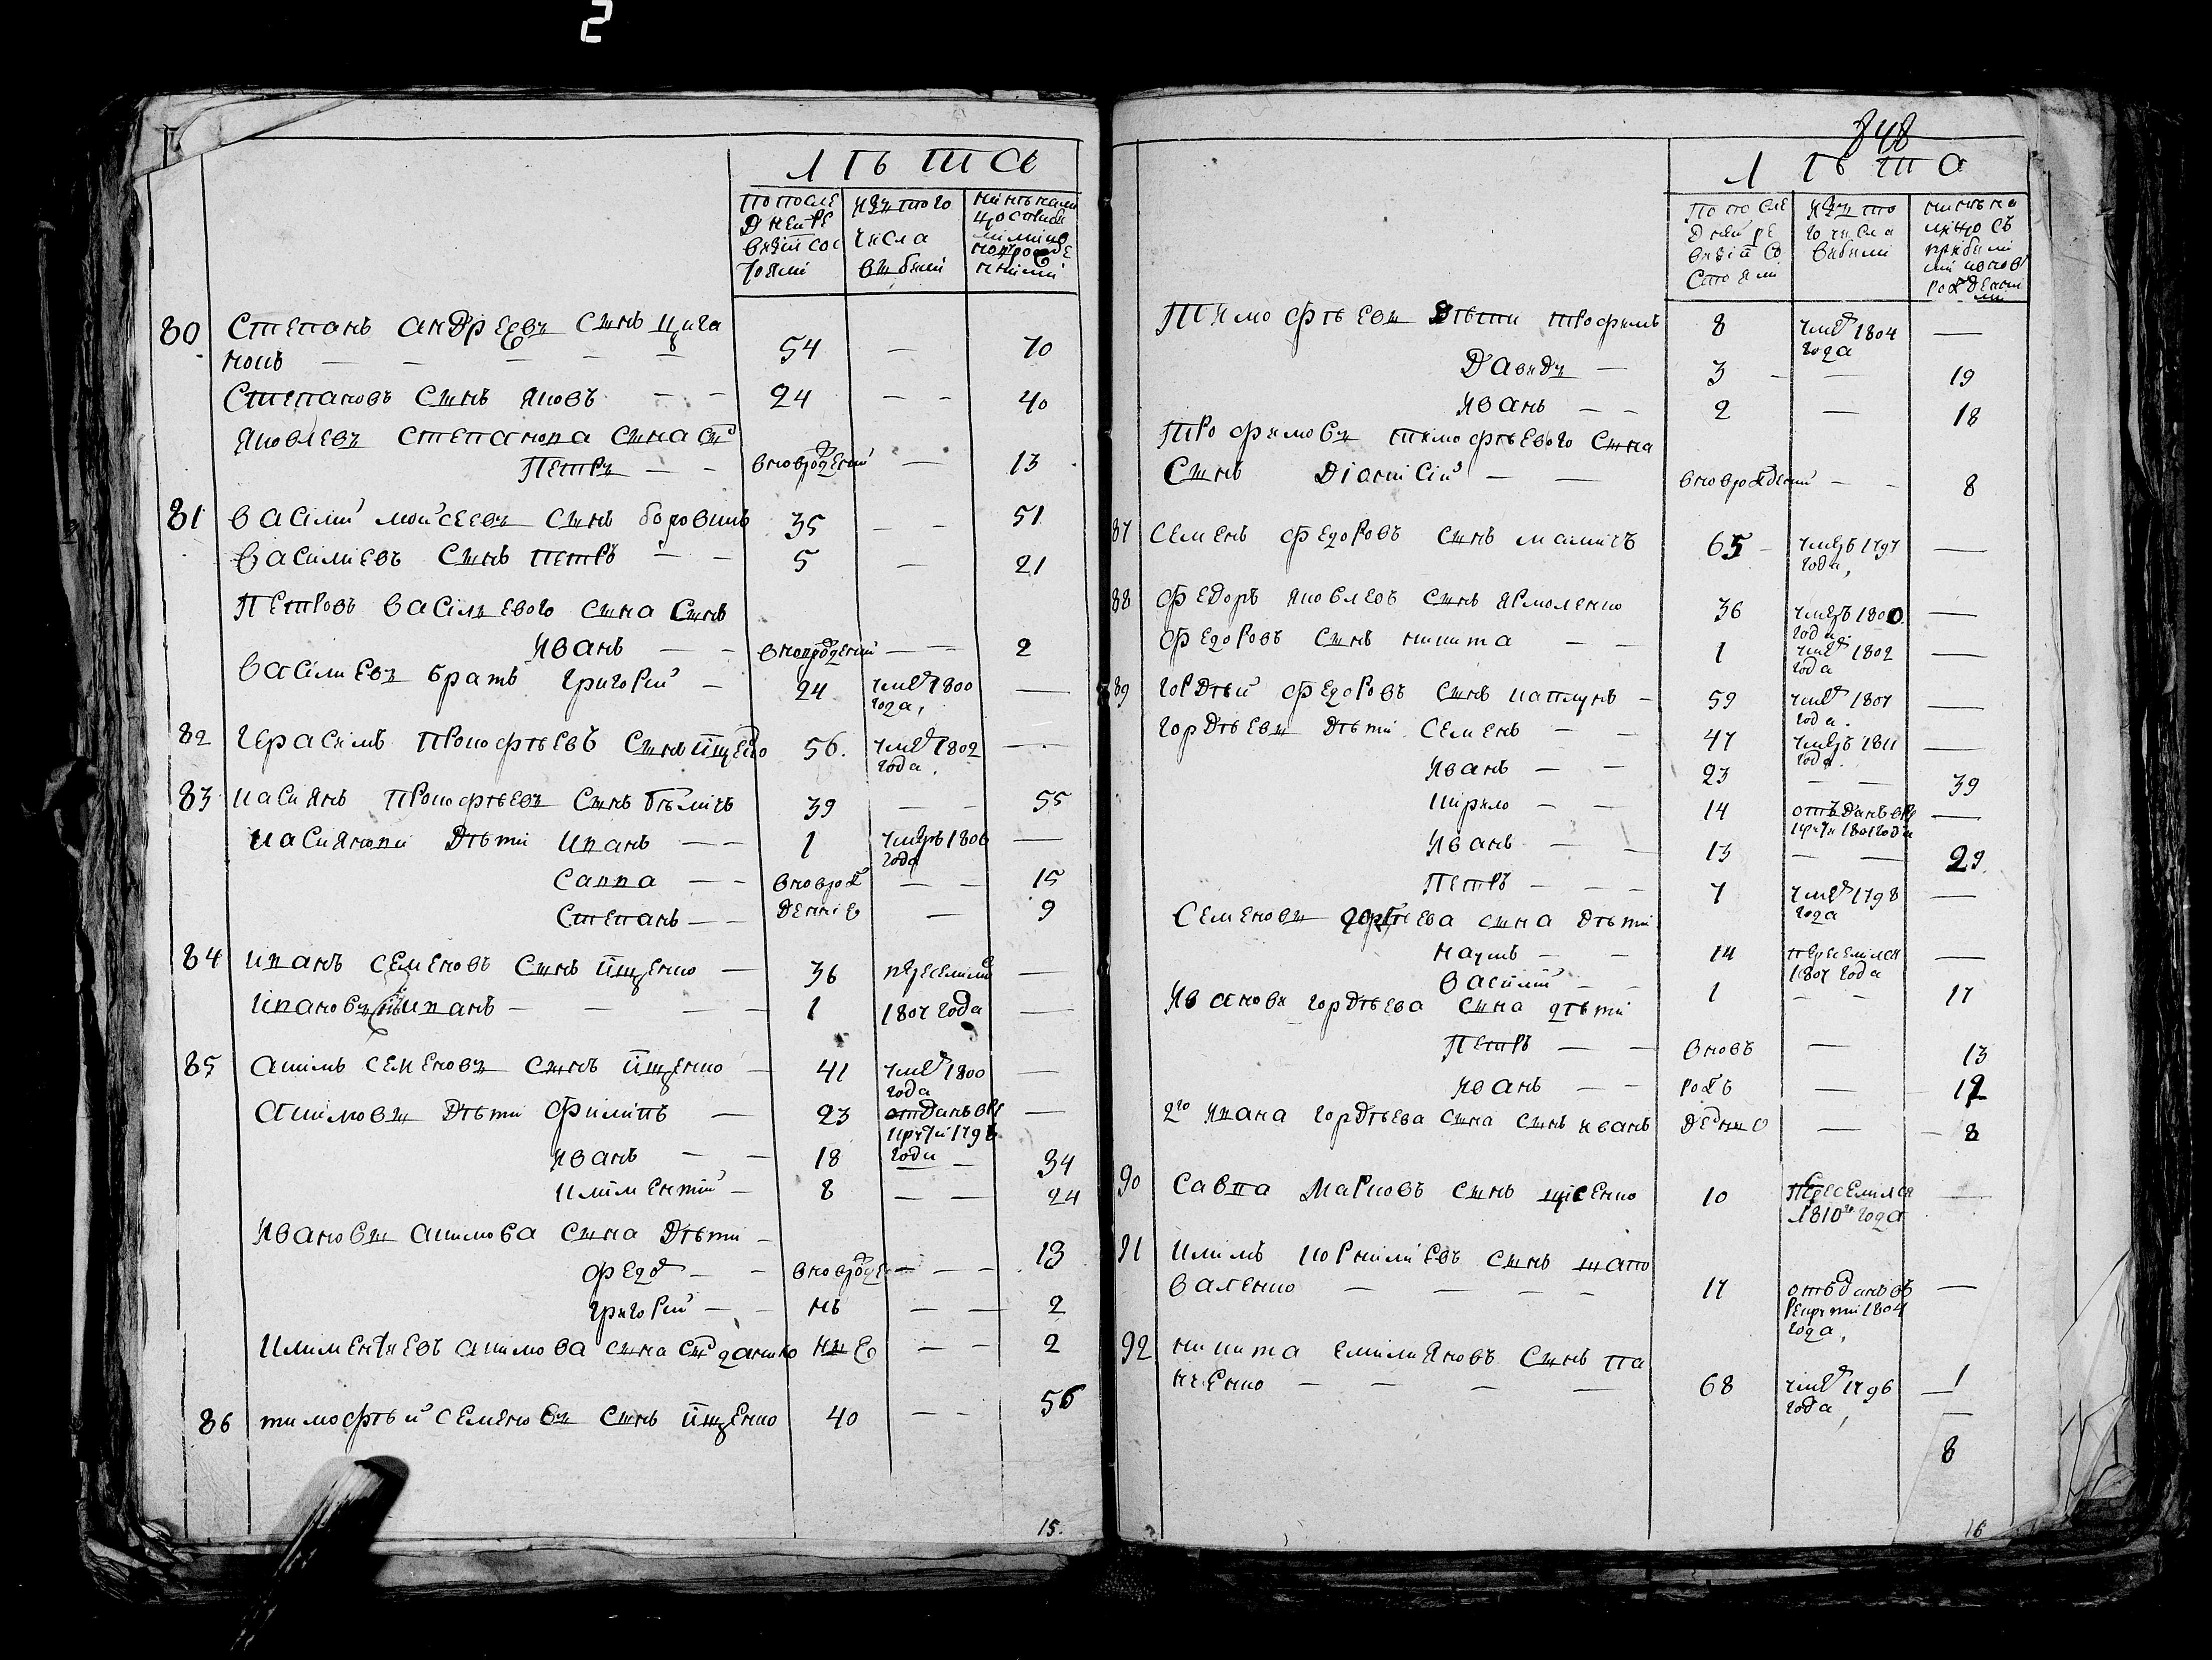 2
ЛѢТА
по после
дней ре
визіи сос
тояли
изъ того
числа
выбыли
80 Степанъ андреевъ сынъ цига
нокъ — — — — — 54 — 70
Степановъ сынъ яковъ — — 24 — — 40
Яковлевъ степанова сына сынъ
Петръ — — вновро́жденый — 13
81 Василій мойсеевъ сынъ боровикъ 35 — — 51
Василиевъ сынъ петръ — — 5 — 21
Петровъ василиевого сына сынъ
Иванъ — — вноврожденый — — 2
Василиевъ братъ григорий — 24 умеръ 1800 —
года,
82 Герасимъ прокофѣевъ сынъ ищенко 56. умеръ 1802 —
года.
83 Касиянъ прокофѣевъ сынъ бѣликъ 39 — — 55
Касиянови дѣти иванъ — — 1 умеръ 1806 —
года
Савва — — вноврож — — 15
Степанъ — — деніе — 9
84 иванъ семеновъ сынъ ищенко — 36 переселились —
ивановъ сынъ иванъ — — — — 1 1807 года —
85 Акимъ семеновъ сынъ ищенко — 41 умеръ 1800 —
года
Акимовы дѣти филипъ — 23 отданъ в ре —
крути 179
года
Иванъ — — 18 — — 34
Климентий — 8 — — 24
Ивановы акимова сына дѣти —
федоръ — — вноврожде — — — 13
григорий — — нъ — — 2
Климентиевъ акимова сына сынъ данило ные — — 2
86 тимофѣй семеновъ сынъ ищенко 40 — — 56
15.
348
ЛѢТА
по после
дней ре
визіи со
стояли
изъ то
го числа
выбили
Тимофѣевы дѣти трофимъ 8 умеръ 1804 —
года
Давидъ — 3 — — 19
Иванъ — — 2 — 18
Трофимовъ тимофѣевого сына
сынъ Діонисій — — вноврожденый — — 8
87 Семенъ федоровъ сынъ 65 — умеръ 1797 —
года,
88 Федоръ яковлевъ сынъ ярмоленко 36 умеръ 1800 —
года.
Федоровъ сынъ никита — — 1 умеръ 1802 —
года
89 Гордѣй федоровъ сынъ каплунъ — 59 умеръ 1807 —
года.
Гордѣевы дѣти семенъ — — 47 умеръ 1811 —
года.
Иванъ — — 23 — — 39
Кирило — — 14 отъданъ в ре —
крути 1801 года
Иванъ — — 13 — — 29.
Петръ — — — 7 умеръ 1798 —
года
Семеновы гордѣева сына дѣти
наумъ — — 14 переселился —
1807 года
Василий — — 1 — — 17
Ивановы гордѣева сына дѣти
Петръ — — вновъ — 13
Иванъ — — рож — 12
2го ивана гордѣева сына сынъ иванъ деные — — 8
90 Савва марковъ сынъ 10 переселился —
1810го года
91 Климъ корнилиевъ сынъ шапо
валенко — — — — 17 отъданъ въ —
рекрути 1804
года,
92 никита емилияновъ сынъ па
нченко — — — — 68 умеръ 1796 — 1
года, —
8
16